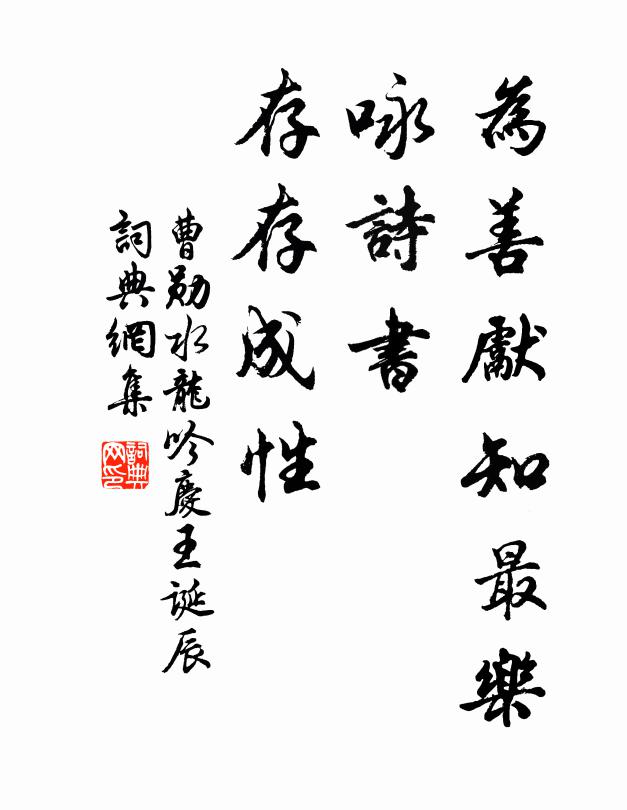 為善獻知最樂
咏詩書
存存成性
曹勛水龍吟慶王誕辰
詞典網集
詞典網印